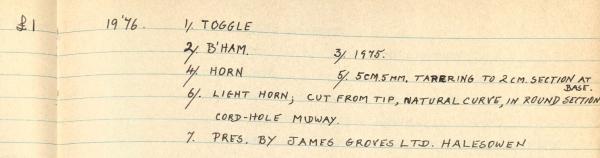 £1 19'76. 1/. TOGGLE
2/. B'HAM. 3/. 1975.
4/. HORN 5/. 5CM.5MM. TAPERING TO 2CM. SECTION AT BASE.
6/. LIGHT HORN; CUT FROM TIP, NATURAL CURVE, IN ROUND SECTION
CORD-HOLE MIDWAY.
7. PRES. BY JAMES GROVES LTD. HALESOWEN